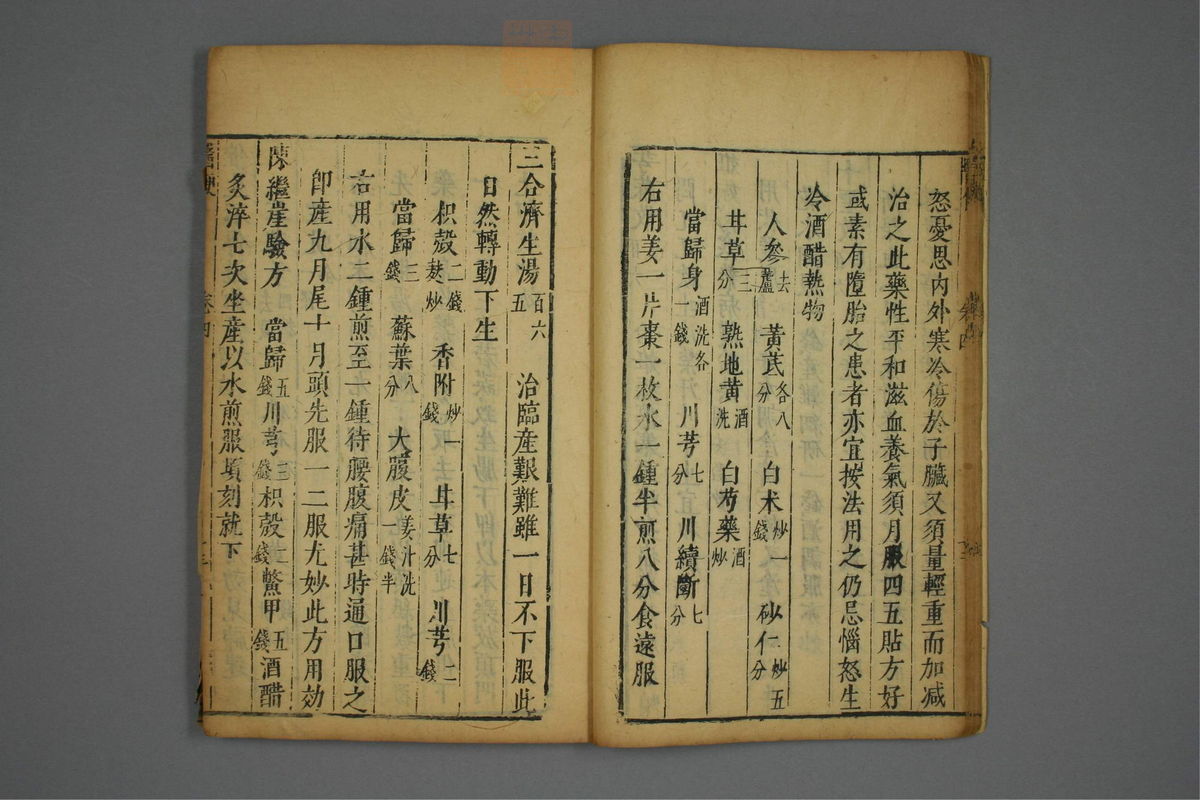 怒憂思內外寒冷傷於子臟又須量輕重而加減
治之此藥性平和滋血養氣須月服四五貼方好
或素有墮胎之患者亦宜按法用之仍忌惱怒生
冷酒醋熱物
人參去蘆 黃芪各八分 白朮炒一錢 砂仁炒五分
甘草三分 熟地黃酒洗 白芍藥酒炒
當歸身酒洗各一錢 川芎七分 川續斷七分
右用姜一片棗一枚水一鍾半煎八分食遠服
三合濟生湯百六五 治臨産艱難雖一日不下服此
自然轉動下生
枳殼二錢麸炒 香附炒一錢 甘草七分 川芎二錢
當歸三錢 蘇葉八分 大腹皮姜汁洗一錢半
右用水二鍾煎至一鍾待腰腹痛甚時通口服之
卽産九月尾十月頭先服一二服尤妙此方用効
陳繼崖驗方 當歸五錢川芎三錢枳殼二錢鱉甲五錢酒醋
炙淬七次坐産以水煎服塡刻就下
卷四